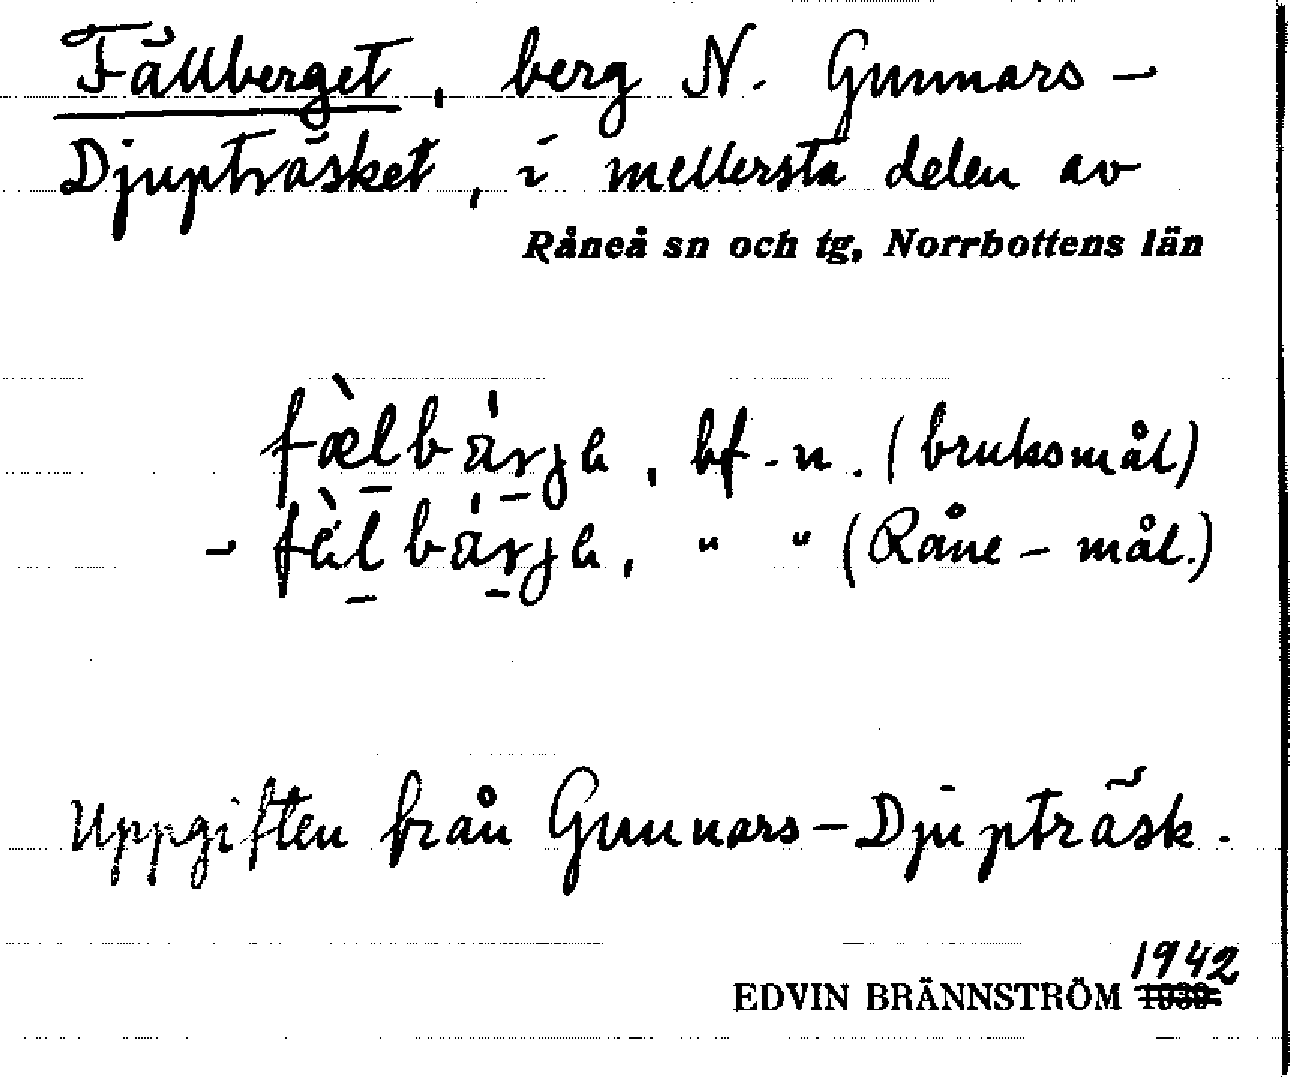 Fällberget, berg N. Gunnars-
Djupträsket, i mellersta delen av
Råneå sn och tg, Norrbottens län
fæ̀lbárja, bf. n. (bruksmål)
- fàlbárja, " " (Råne-mål.)
Uppgiften från Gunnars-Djupträsk.
1942
EDVIN BRÄNNSTRÖM 1939